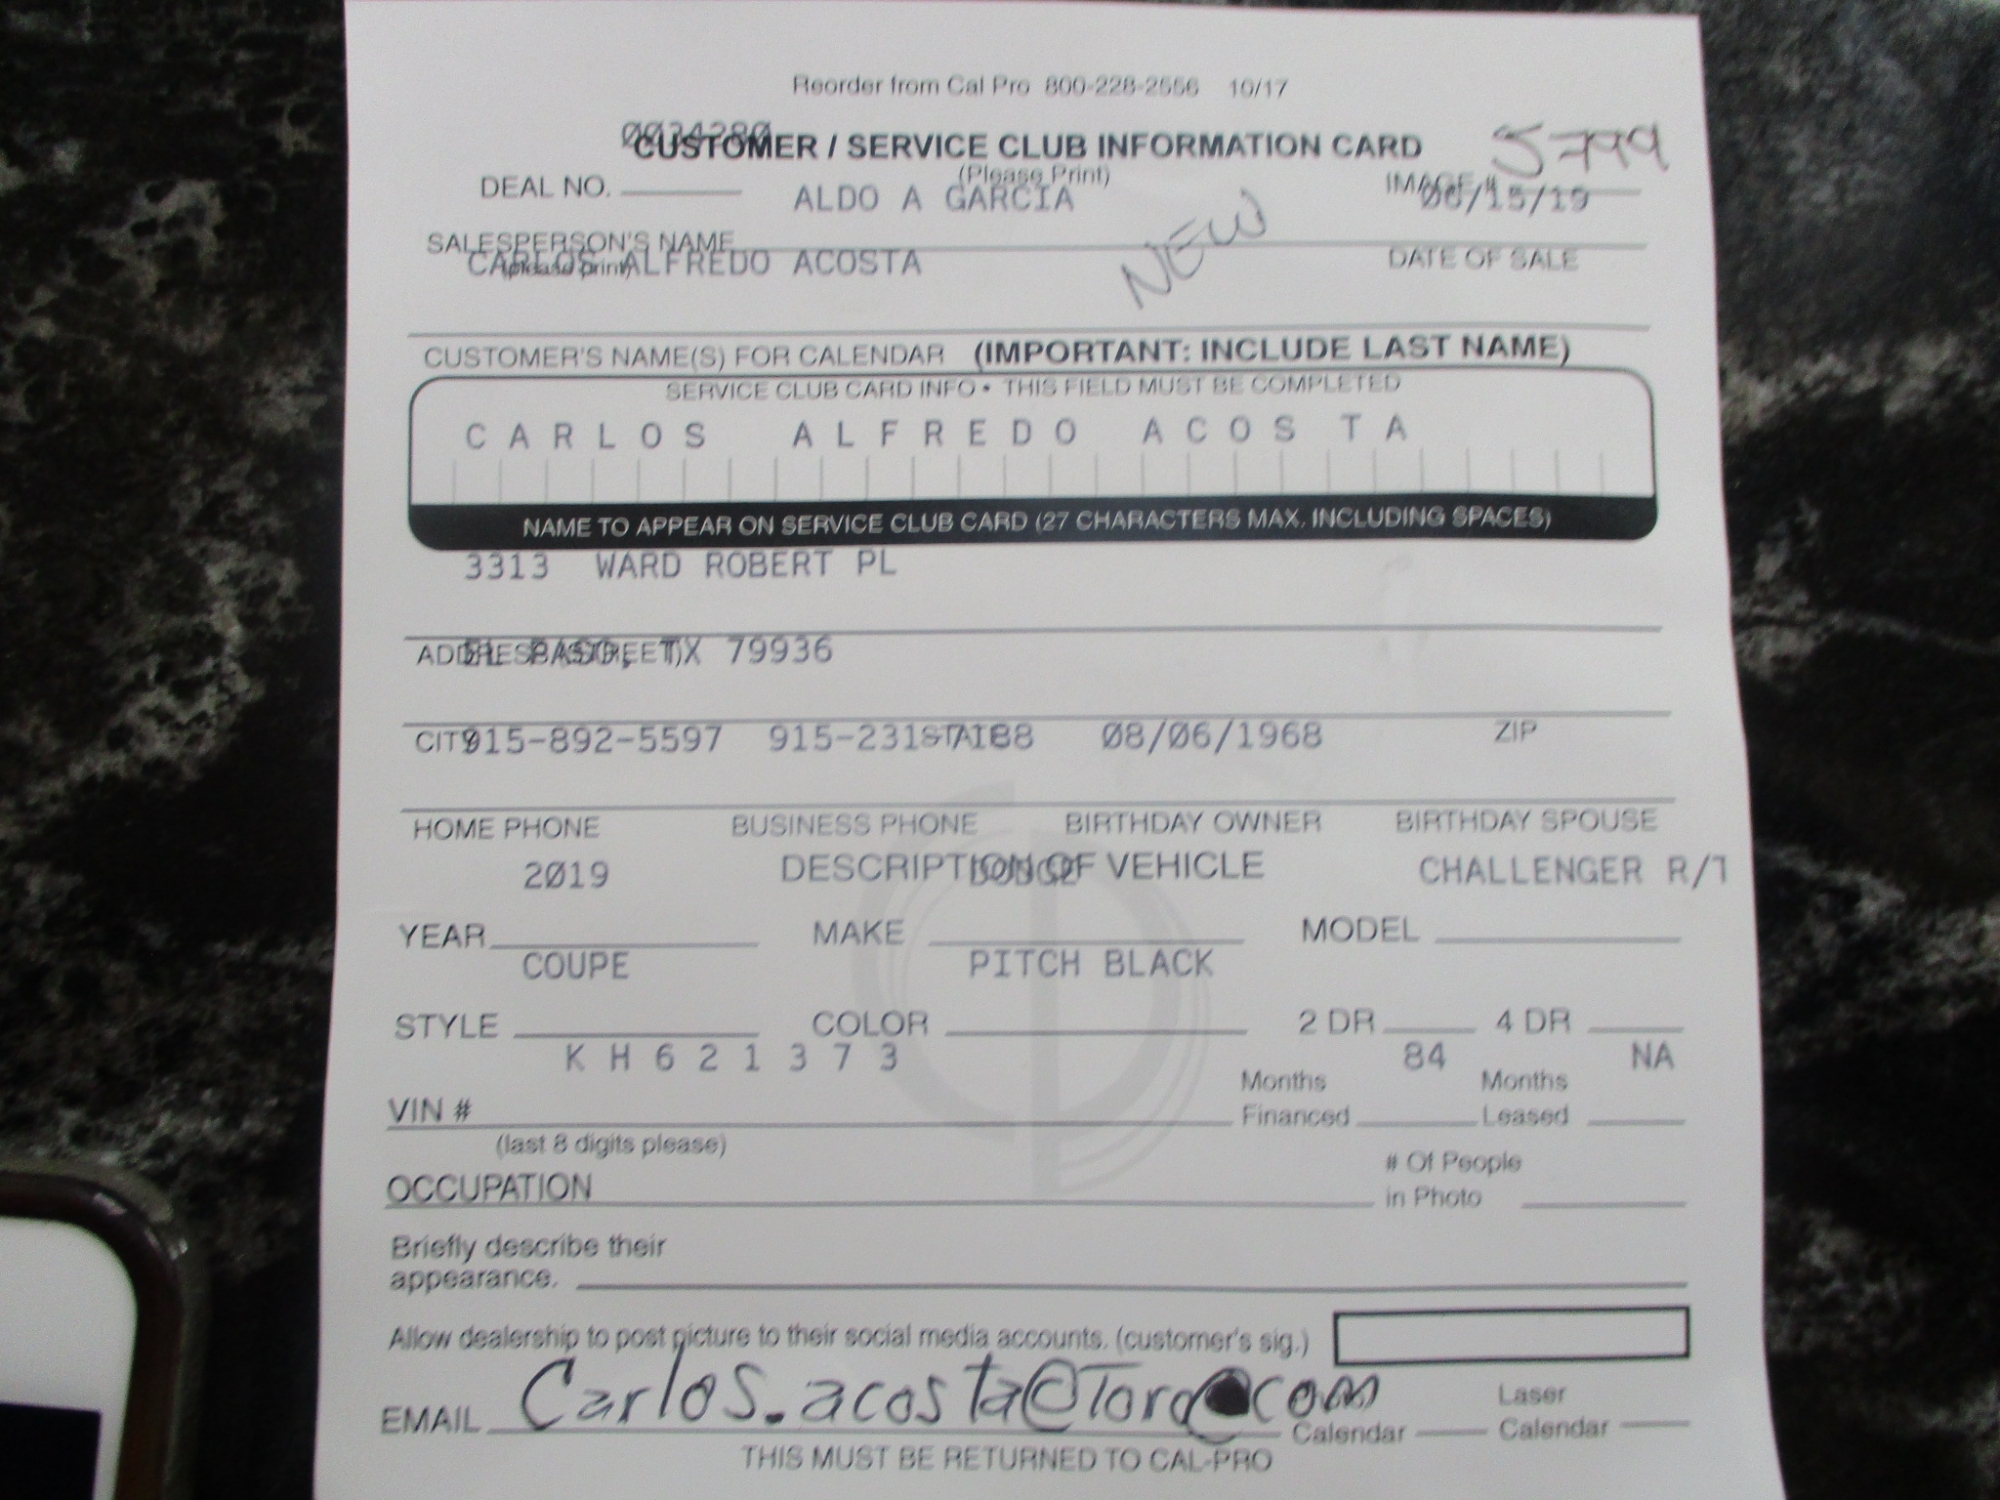 Reorder from Cal Pro 800-228-2556 10/17
0034280
CUSTOMER / SERVICE CLUB INFORMATION CARD
S-799
(Please Print)
DEAL NO.
ALDO A GARCIA
IMAGE #
06/15/19
NEW
SALESPERSON'S NAME
(please print)
CARLOS ALFREDO ACOSTA
DATE OF SALE
CUSTOMER'S NAME(S) FOR CALENDAR (IMPORTANT: INCLUDE LAST NAME)
SERVICE CLUB CARD INFO • THIS FIELD MUST BE COMPLETED
CARLOS ALFREDO ACOSTA
NAME TO APPEAR ON SERVICE CLUB CARD (27 CHARACTERS MAX. INCLUDING SPACES)
3313 WARD ROBERT PL
ADDRESS (STREET)
EL PASO, TX 79936
CITY STATE ZIP
915-892-5597 08/06/1968
HOME PHONE BUSINESS PHONE BIRTHDAY OWNER BIRTHDAY SPOUSE
DESCRIPTION OF VEHICLE
2019 DODGE CHALLENGER R/T
YEAR MAKE MODEL
COUPE PITCH BLACK
STYLE COLOR 2 DR 4 DR
KH621373 84 NA
VIN # Months Financed Months Leased
(last 8 digits please)
OCCUPATION # Of People in Photo
Briefly describe their
appearance.
Allow dealership to post picture to their social media accounts. (customer's sig.)
EMAIL Carlos.acosta@Toro.com Calendar Laser Calendar
THIS MUST BE RETURNED TO CAL-PRO